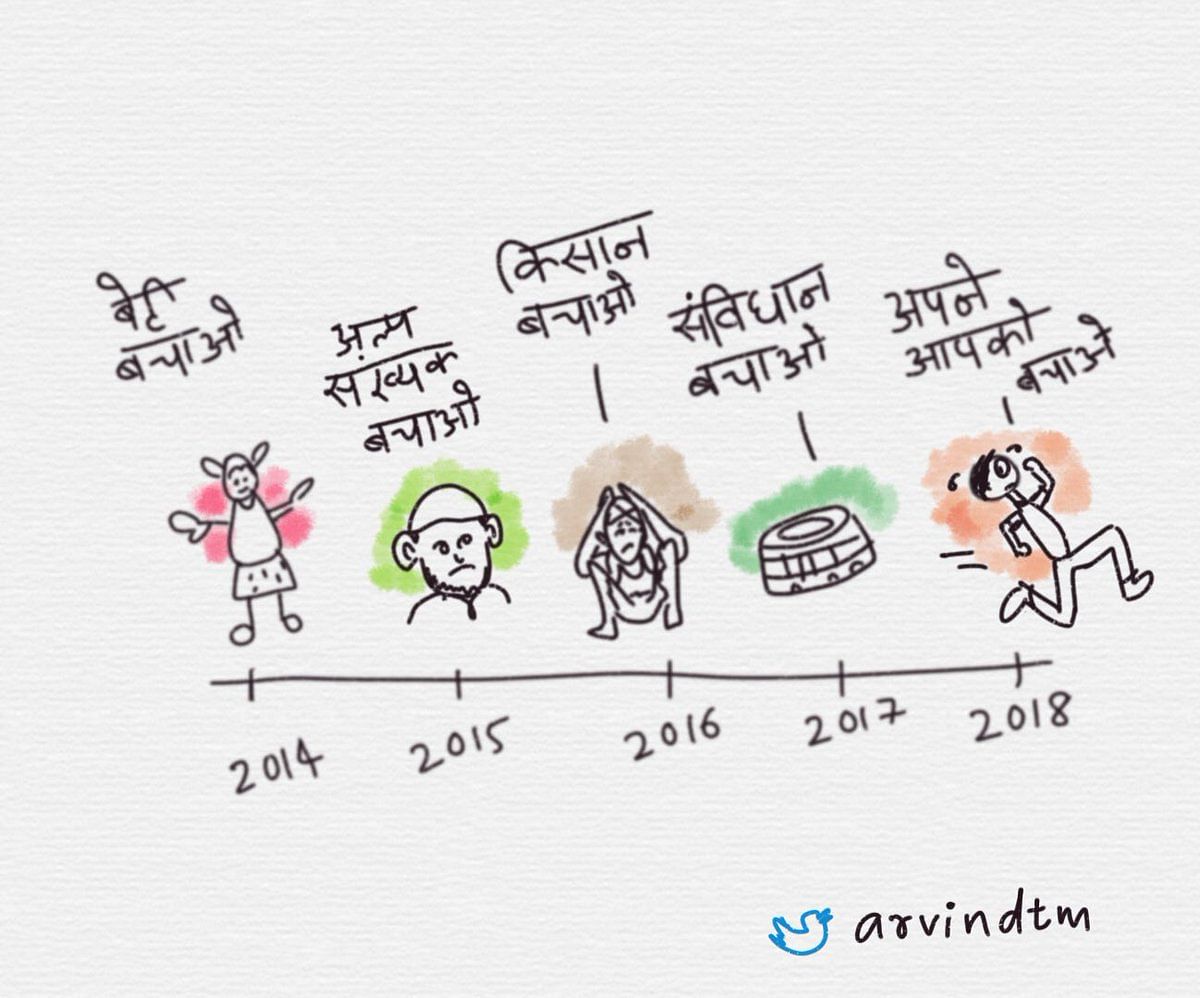 बेटी
बचाओ
अल्प
सख्यक
बचाओ
किसान
बचाओ
संविधान
बचाओ
अपने
आपको
बचाओ
2014
2015
2016
2017
2018
arvindtm